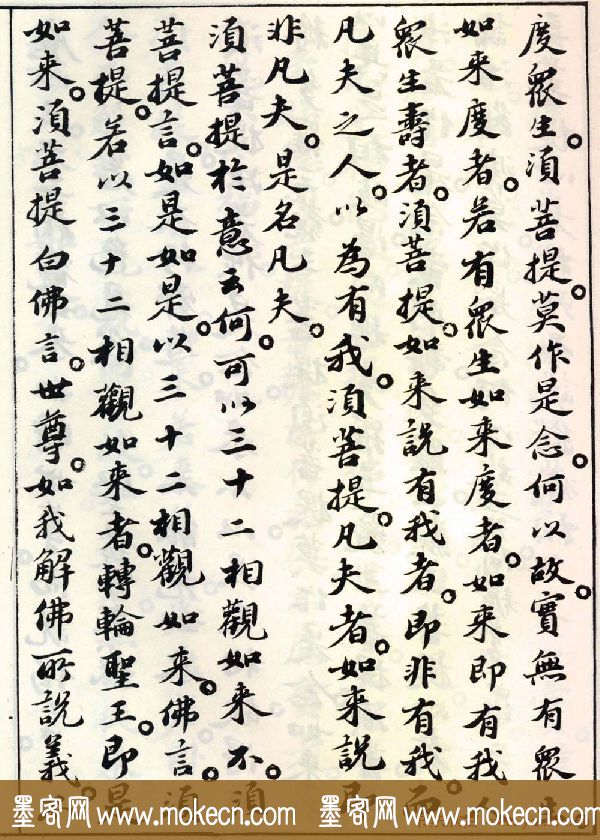 度眾生。須菩提。莫作是念。何以故。實無有眾生
如來度者。若有眾生如來度者。如來即有我人
眾生壽者。須菩提。如來說有我者。即非有我。而
凡夫之人。以為有我。須菩提。凡夫者。如來說即
非凡夫。是名凡夫。
須菩提於意云何。可以三十二相觀如來不。須
菩提言。如是如是。以三十二相觀如來。佛言。須
菩提。若以三十二相觀如來者。轉輪聖王。即是
如來。須菩提白佛言。世尊。如我解佛所說義。
墨客网 www.mokecn.com 墨客网 www.mokecn.com